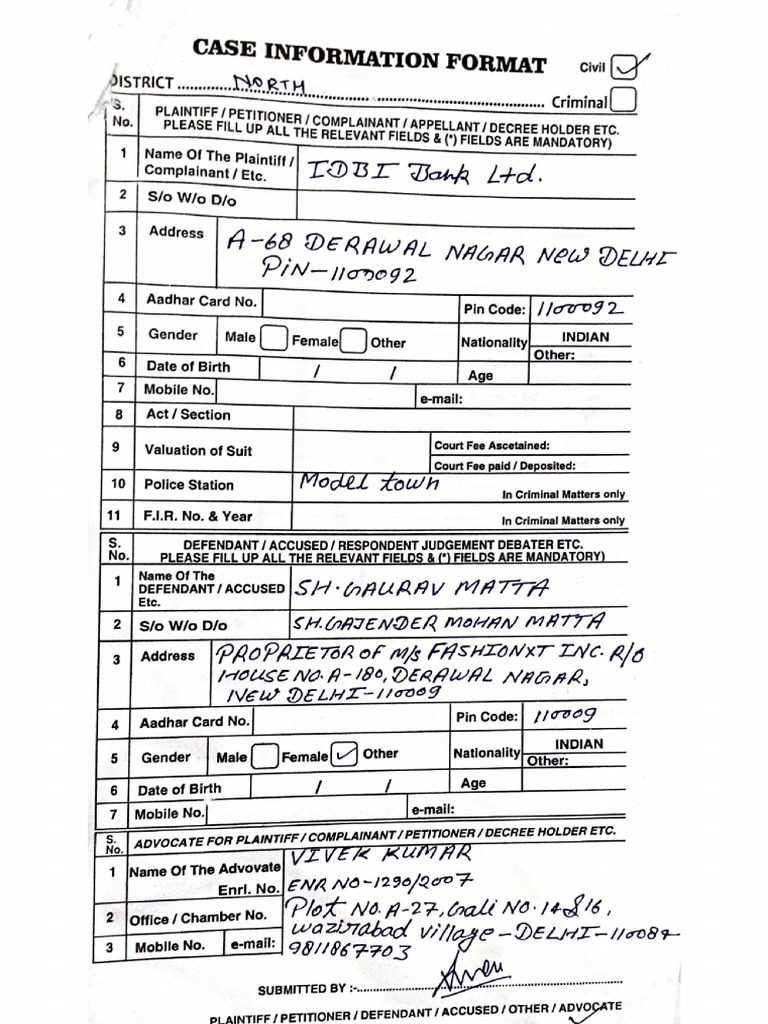 CASE INFORMATION FORMAT
Civil ✓
DISTRICT .......... NORTH .......... Criminal
S. No. PLAINTIFF / PETITIONER / COMPLAINANT / APPELLANT / DECREE HOLDER ETC.
PLEASE FILL UP ALL THE RELEVANT FIELDS & (*) FIELDS ARE MANDATORY)
1 Name Of The Plaintiff / Complainant / Etc. IDBI Bank Ltd.
2 S/o W/o D/o
3 Address A-68 DERAWAL NAGAR NEW DELHI
PIN-1100092
4 Aadhar Card No. Pin Code: 1100092
5 Gender Male Female Other Nationality INDIAN
Other:
6 Date of Birth / / Age
7 Mobile No. e-mail:
8 Act / Section
9 Valuation of Suit Court Fee Ascetained:
Court Fee paid / Deposited:
10 Police Station Model town In Criminal Matters only
11 F.I.R. No. & Year In Criminal Matters only
S. No. DEFENDANT / ACCUSED / RESPONDENT JUDGEMENT DEBATER ETC.
PLEASE FILL UP ALL THE RELEVANT FIELDS & (*) FIELDS ARE MANDATORY)
1 Name Of The DEFENDANT / ACCUSED Etc. SH. GAURAV MATTA
2 S/o W/o D/o SH. GAJENDER MOHAN MATTA
3 Address PROPRIETOR OF M/S FASHIONXT INC. R/O
HOUSE NO. A-180, DERAWAL NAGAR,
NEW DELHI-110009
4 Aadhar Card No. Pin Code: 110009
5 Gender Male Female ✓ Other Nationality INDIAN
Other:
6 Date of Birth / / Age
7 Mobile No. e-mail:
S. No. ADVOCATE FOR PLAINTIFF / COMPLAINANT / PETITIONER / DECREE HOLDER ETC.
1 Name Of The Advocate VIVEK KUMAR
Enrl. No. ENR NO-1290/2007
2 Office / Chamber No. Plot NO. A-27, Gali NO. 14 & 16,
Wazirabad village-DELHI-110084
3 Mobile No. e-mail: 9811867703
SUBMITTED BY :-..........
PLAINTIFF / PETITIONER / DEFENDANT / ACCUSED / OTHER / ADVOCATE ✓